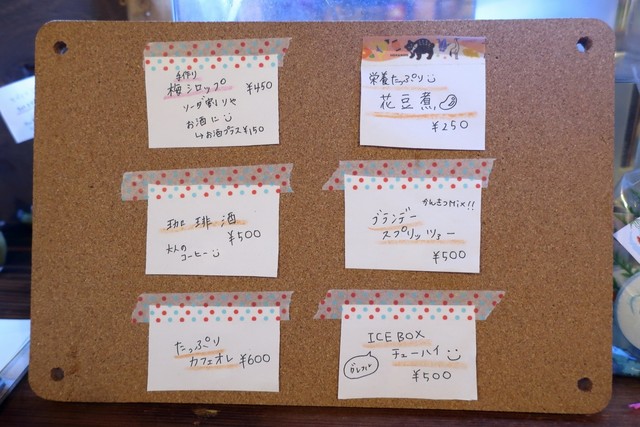 手作り
梅シロップ ¥450
ソーダ割りや
お酒に
↳お酒プラス¥150
栄養たっぷり
花豆煮
¥250
珈琲酒
¥500
大人の
コーヒー
かんきつMix!!
ブランデー
スプリッツァー
¥500
たっぷり
カフェオレ ¥600
ICE BOX
チューハイ
¥500